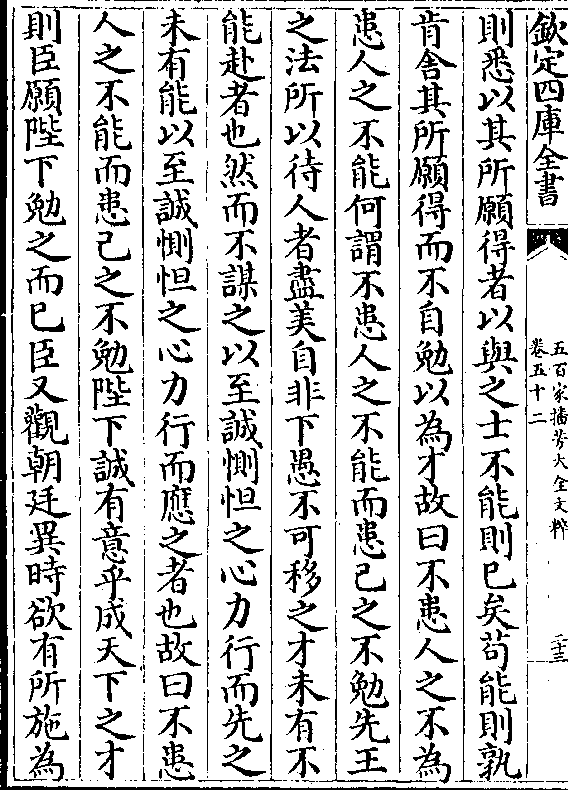 欽定四庫全書
五百家播芳大全文粹
卷五十二
二十三
則悉以其所願得者以與之士不能則已矣苟能則孰
肯舍其所願得而不自勉以為才故曰不患人之不為
患人之不能何謂不患人之不能而患己之不勉先王
之法所以待人者盡美自非下愚不可移之才未有不
能赴者也然而不謀之以至誠惻怛之心力行而先之
未有能以至誠惻怛之心力行而應之者也故曰不患
人之不能而患己之不勉陛下誠有意乎成天下之才
則臣願陛下勉之而已臣又觀朝廷異時欲有所施為